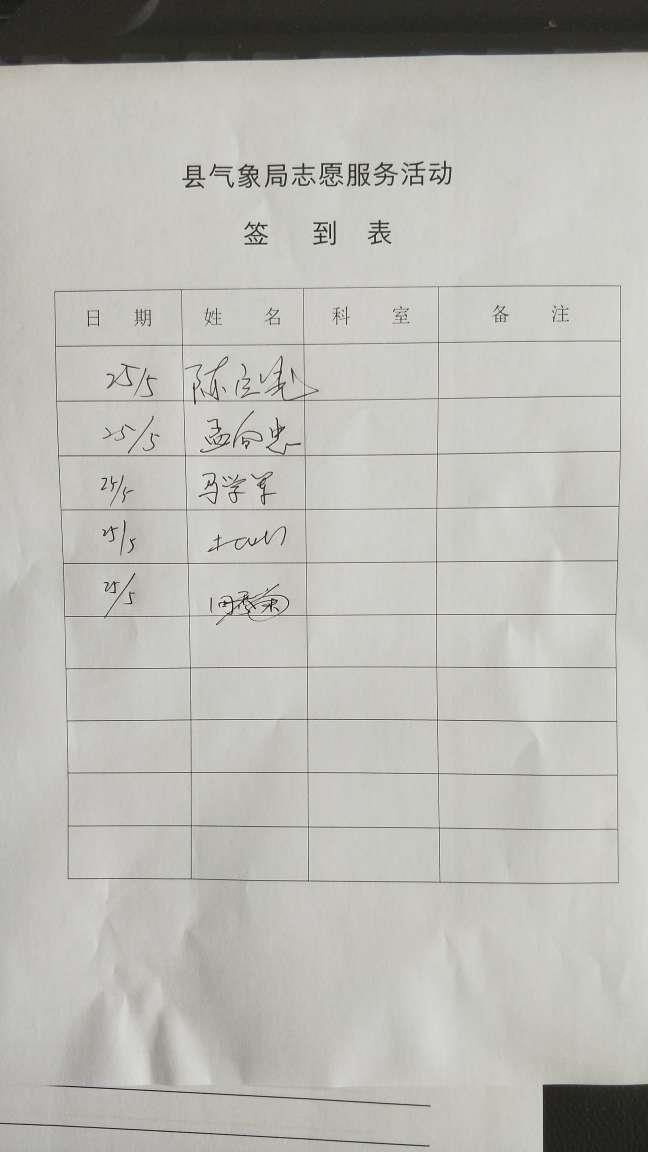 县气象局志愿服务活动
签 到 表
日 期 姓 名 科 室 备 注
25/5 陈
25/5 孟向忠
25/5 马学军
25/5
25/5